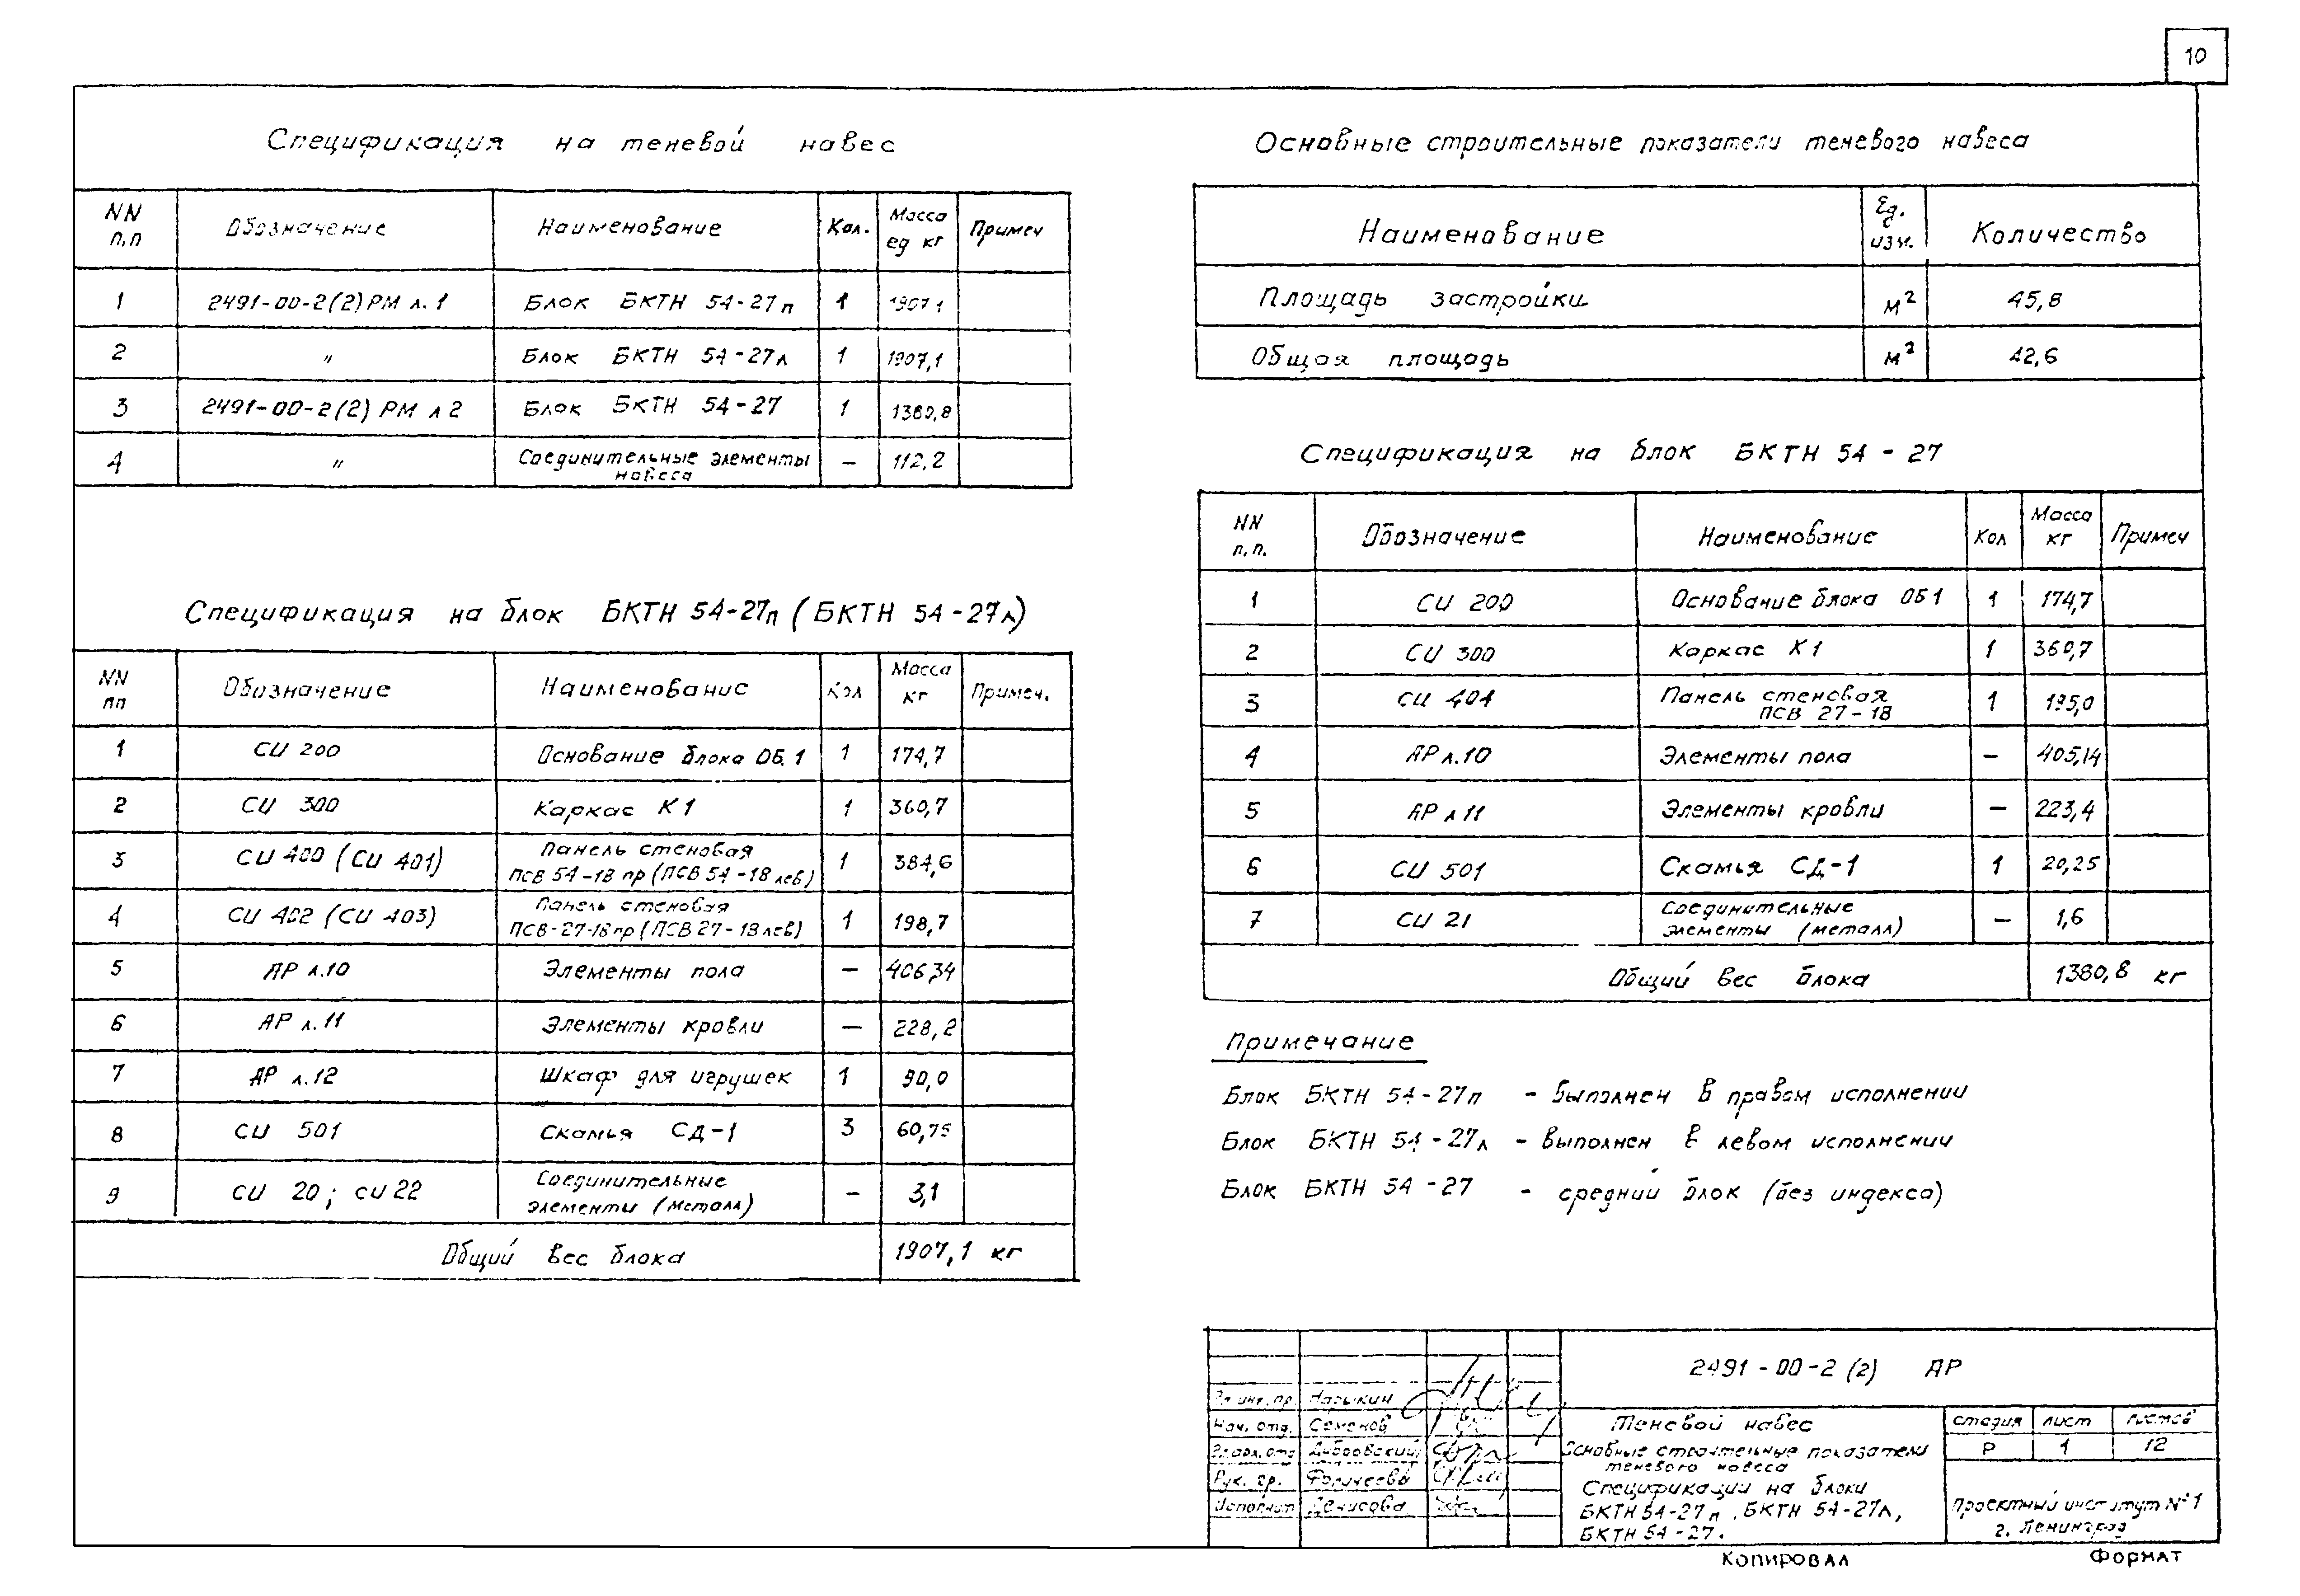 10
Спецификация на теневой навес
NN п.п Обозначение Наименование Кол. Масса ед кг Примеч
1 2491-00-2(2) РМ л. 1 Блок БКТН 54-27п 1 1907,1
2 " Блок БКТН 54-27л 1 1907,1
3 2491-00-2(2) РМ л 2 Блок БКТН 54-27 1 1380,8
4 " Соединительные элементы навеса — 112,2
Спецификация на блок БКТН 54-27п (БКТН 54-27л)
NN пп Обозначение Наименование Кол Масса кг Примеч.
1 СИ 200 Основание блока ОБ.1 1 174,7
2 СИ 300 Каркас К1 1 360,7
3 СИ 400 (СИ 401) Панель стеновая ПСВ 54-18 пр (ПСВ 54-18 лев) 1 384,6
4 СИ 402 (СИ 403) Панель стеновая ПСВ-27-18пр (ПСВ 27-18 лев) 1 198,7
5 АР л.10 Элементы пола — 406,34
6 АР л.11 Элементы кровли — 228,2
7 АР л.12 Шкаф для игрушек 1 90,0
8 СИ 501 Скамья СД-1 3 60,75
9 СИ 20; СИ 22 Соединительные элементы (металл) — 3,1
Общий вес блока 1907,1 кг
Основные строительные показатели теневого навеса
Наименование Ед. изм. Количество
Площадь застройки м² 45,8
Общая площадь м² 42,6
Спецификация на блок БКТН 54-27
NN п.п. Обозначение Наименование Кол Масса кг Примеч
1 СИ 200 Основание блока ОБ1 1 174,7
2 СИ 300 Каркас К1 1 360,7
3 СИ 404 Панель стеновая ПСВ 27-18 1 195,0
4 АР л.10 Элементы пола — 405,14
5 АР л 11 Элементы кровли — 223,4
6 СИ 501 Скамья СД-1 1 20,25
7 СИ 21 Соединительные элементы (металл) — 1,6
Общий вес блока 1380,8 кг
Примечание
Блок БКТН 54-27п - выполнен в правом исполнении
Блок БКТН 54-27л - выполнен в левом исполнении
Блок БКТН 54-27 - средний блок (без индекса)
2491-00-2 (2) АР
Гл инж. пр Нарыкин
Нач. отд. Семенов
Дубровский
Рук. гр.
Исполнит Денисова
Теневой навес
Основные строительные показатели
теневого навеса
Спецификации на блоки
БКТН 54-27п, БКТН 54-27л,
БКТН 54-27.
стадия лист листов
Р 1 12
Проектный институт №1
г. Ленинград
Копировал Формат